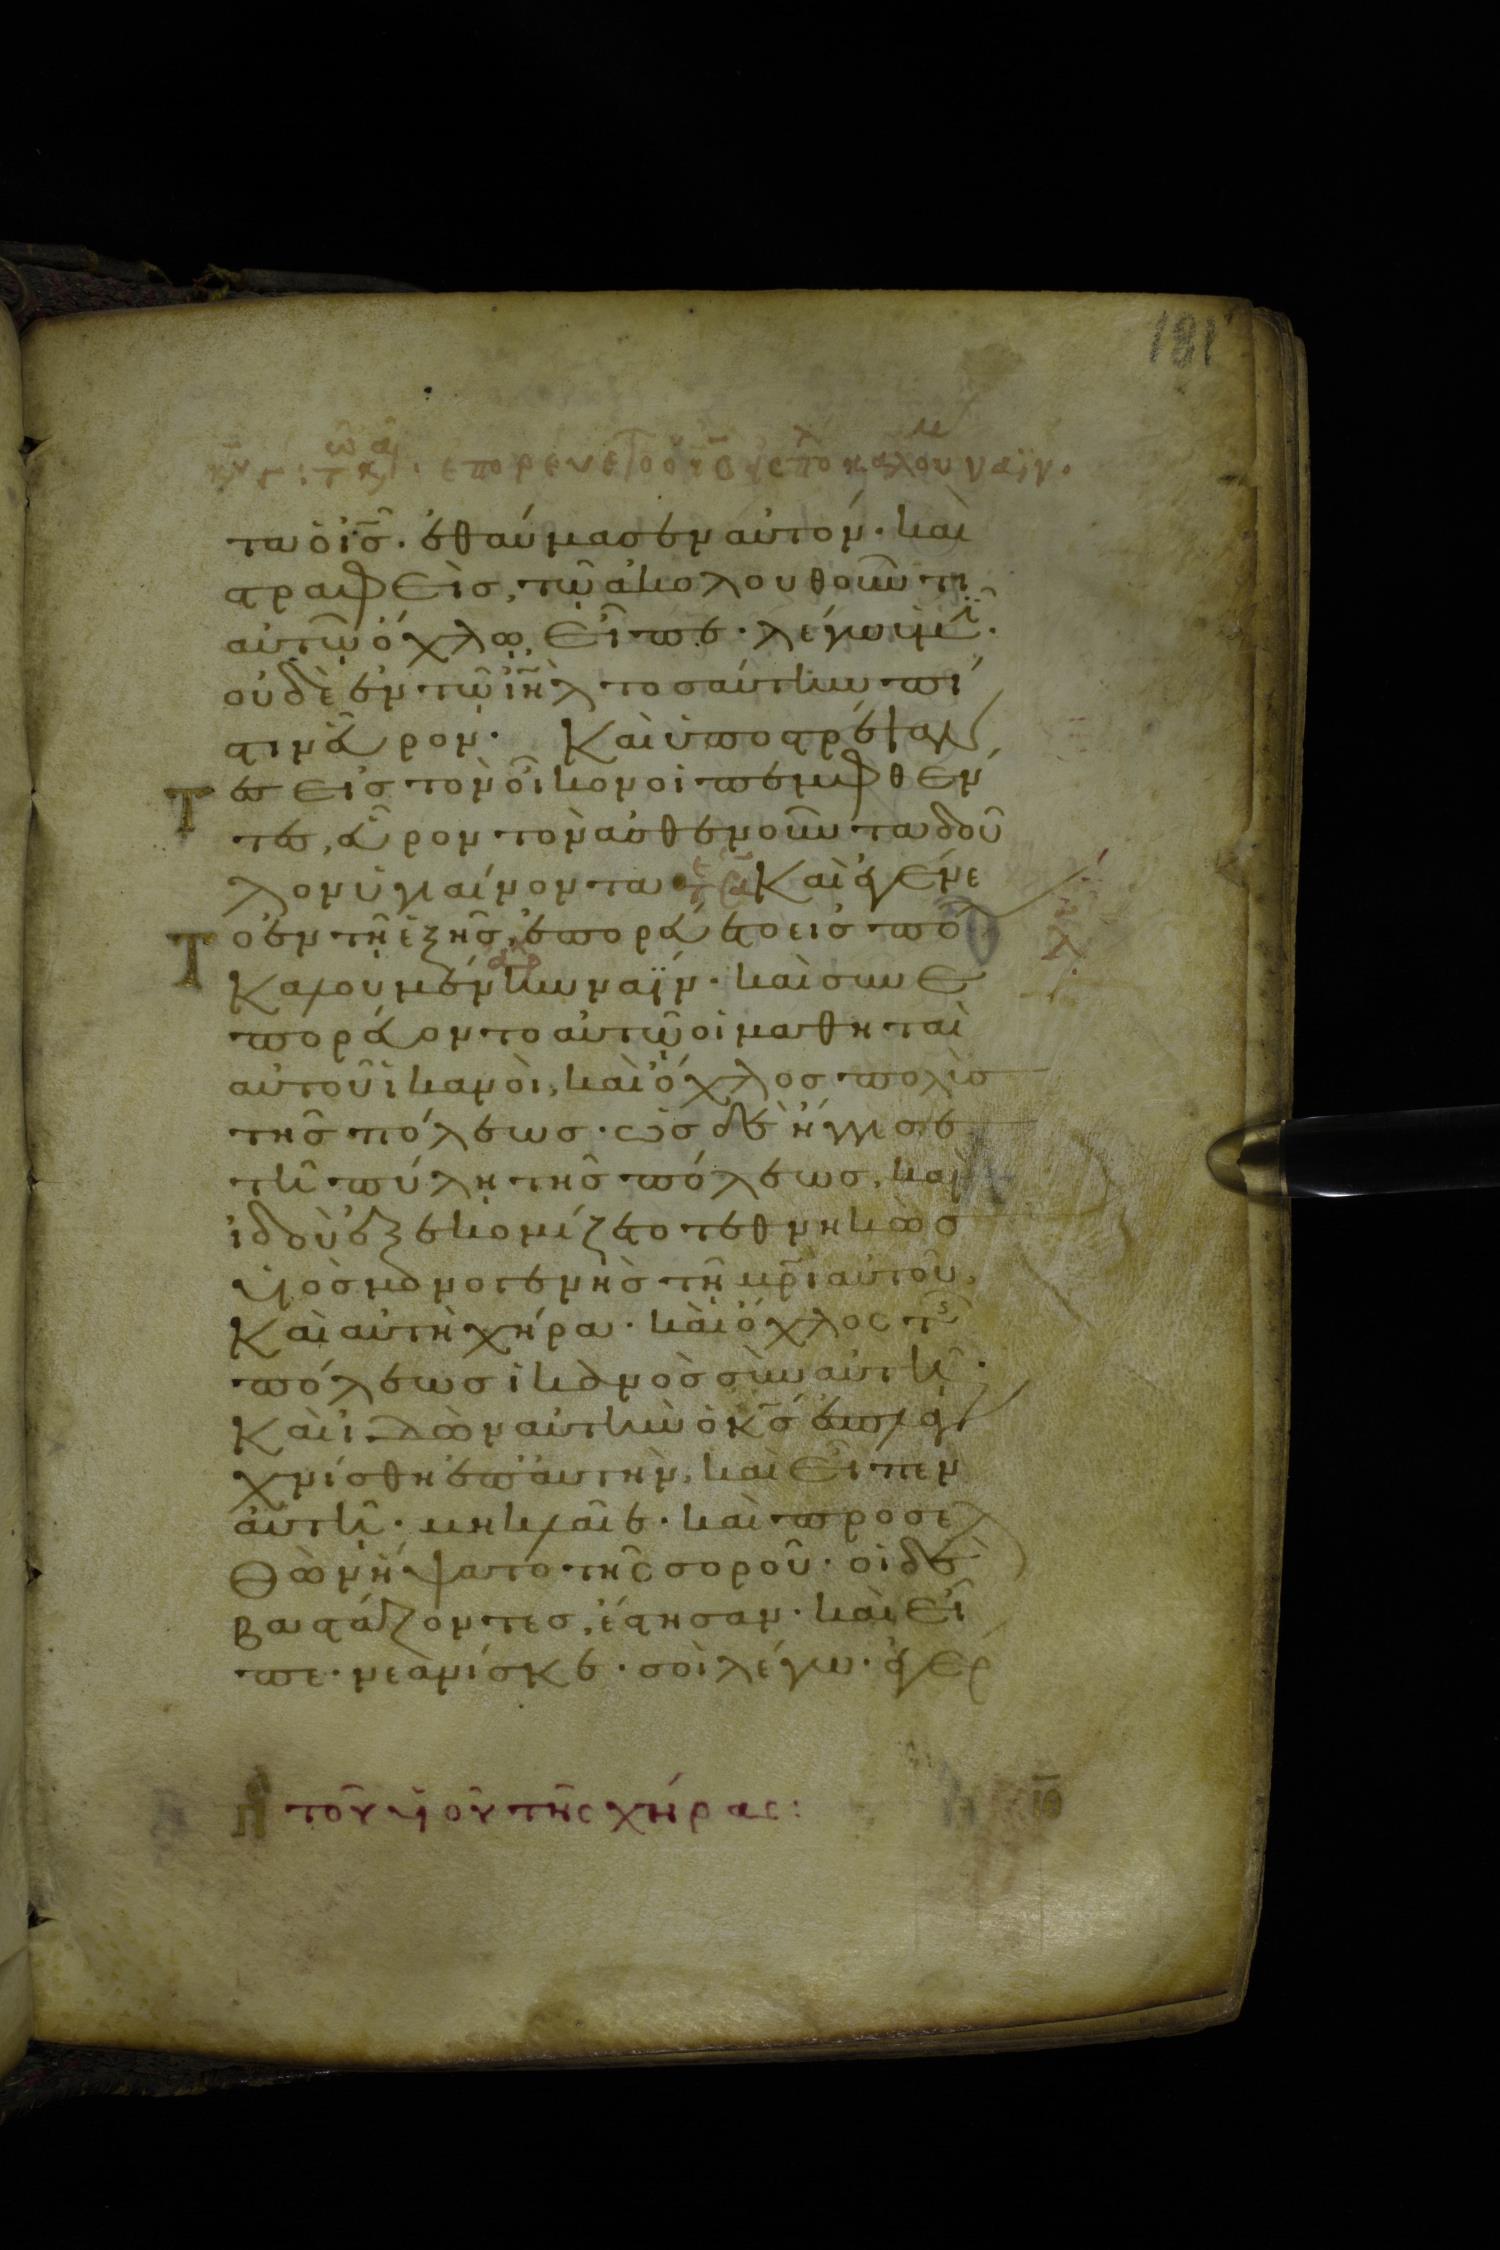 181
επορευετο ο ις εις πο καλουν ναϊν.
τα ὁ ις̅. ἐθαύμασεν αὐτόν. καὶ
στραφεὶς, τῷ ἀκολουθοῦντι
αὐτῷ ὄχλῳ εἶπε. λέγω ὑμῖ.
οὐδὲ ἐν τῷ ιη̅λ τοσαύτην πί
στιν εὗρον. Καὶ ὑποστρέψαν
τες εἰς τὸν οἶκον οἱ πεμφθέν
τες, εὗρον τὸν ἀσθενοῦντα δοῦ
λον ὑγιαίνοντα Καὶ ἐγένε
το ἐν τῇ ἑξῆς, ἐπορεύετο εἰς πό
καλουμένην ναΐν. καὶ συνε
πορεύοντο αὐτῷ οἱ μαθηταὶ
αὐτοῦ ἱκανοὶ, καὶ ὄχλος πολὺς
τῆς πόλεως. ὡς δὲ ἤγγισε
τῇ πύλῃ τῆς πόλεως, καὶ
ἰδοὺ ἐξεκομίζετο τεθνηκὼς
υἱὸς μονογενὴς τῇ μρ̅ι αὐτοῦ,
Καὶ αὐτὴ χήρα. καὶ ὄχλος τῆς
πόλεως ἱκανὸς σὺν αὐτῇ.
Καὶ ἰδὼν αὐτὴν ὁ κς̅ ἐσπλαγ
χνίσθη ἐπ αὐτὴν, καὶ εἶπεν
αὐτῇ. μὴ κλαῖε. καὶ προσελ
θὼν ἥψατο τῆς σοροῦ. οἱ δὲ
βαστάζοντες, ἔστησαν. καὶ εἶ
πε. νεανίσκε. σοὶ λέγω. ἐγέρ
τοῦ υἱοῦ τῆς χήρας: